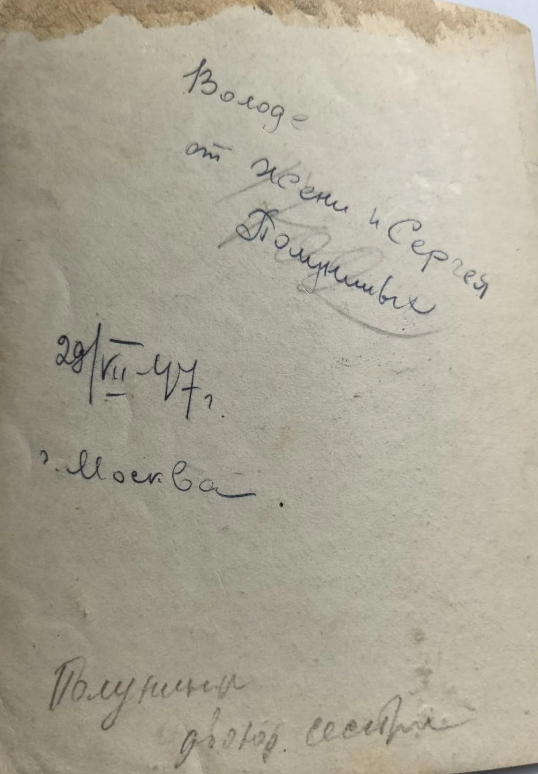 Володе
от Жени и Сергея
Полуниных
29/VII 47 г.
г. Москва.
Полунины
двоюр. сестра